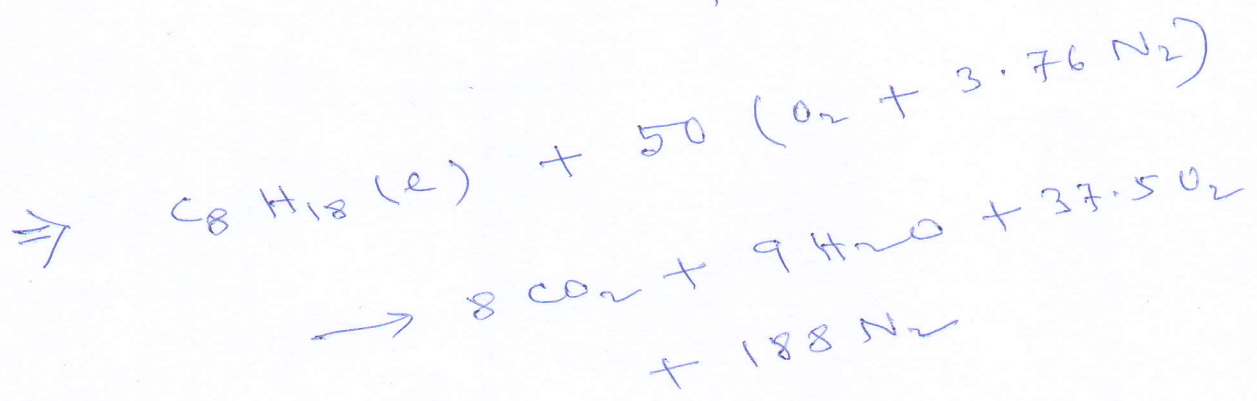 ⇒ C8 H18 (l) + 50 (O2 + 3.76 N2)
→ 8 CO2 + 9 H2O + 37.5 O2
+ 188 N2